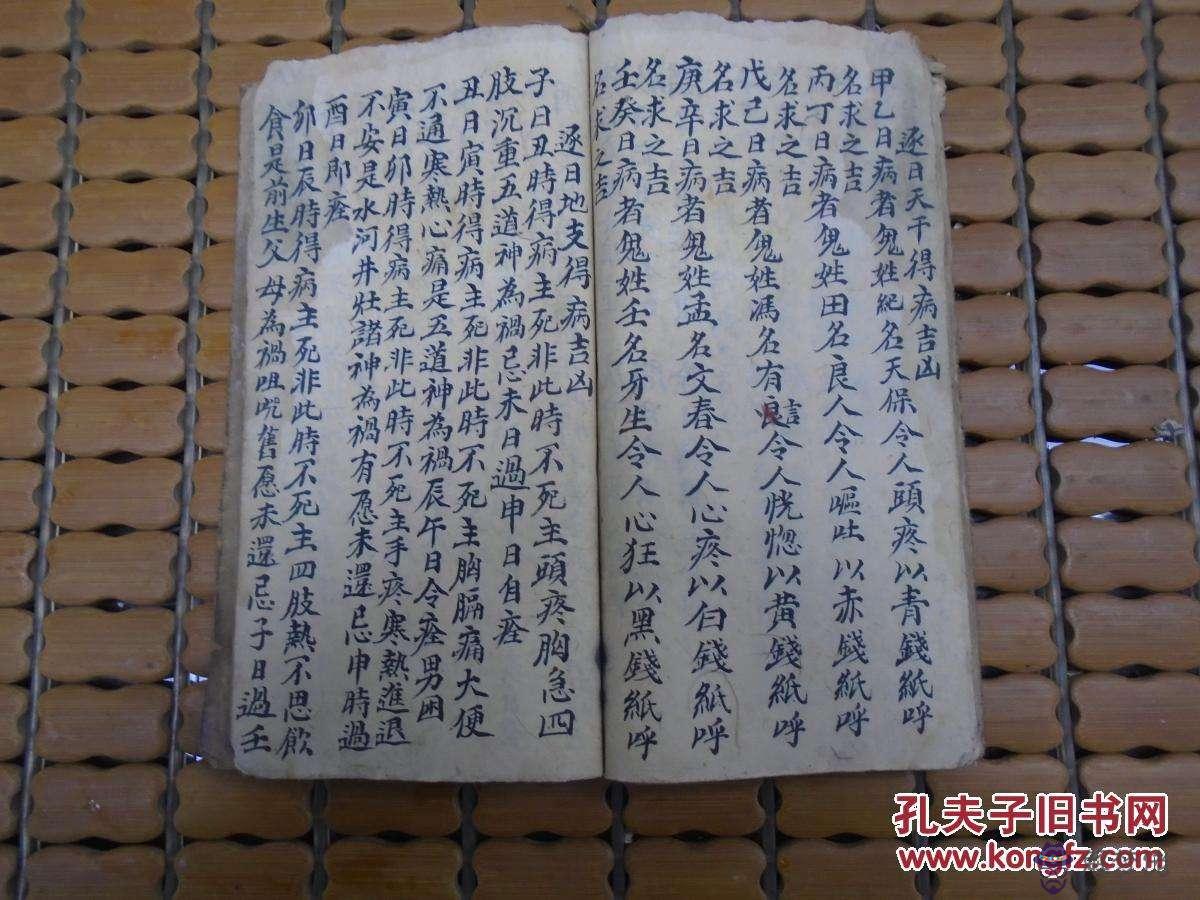 逐日天干得病吉凶
甲乙日病者鬼姓紀名天保令人頭疼以青錢紙呼
名求之吉
丙丁日病者鬼姓田名良人令人嘔吐以赤錢紙呼
名求之吉
戊己日病者鬼姓馮名有言令人恍惚以黄錢紙呼
名求之吉
庚辛日病者鬼姓孟名文春令人心疼以白錢紙呼
名求之吉
壬癸日病者鬼姓壬名牙生令人心狂以黑錢紙呼
名求之吉
逐日地支得病吉凶
子日丑時得病主死非此時不死主頭疼胸急四
肢沉重五道神為禍忌未日過申日自痊
丑日寅時得病主死非此時不死主胸膈痛大便
不通寒熱心痛是五道神為禍辰午日令痊男困
寅日卯時得病主死非此時不死主手疼寒熱進退
不安是水河井灶諸神為禍有愿未還忌申時過
酉日即痊
卯日辰時得病主死非此時不死主四肢熱不思飲
食是前生父母為禍咀咒舊愿未還忌子日過壬
孔夫子旧书网
www.kongfz.com